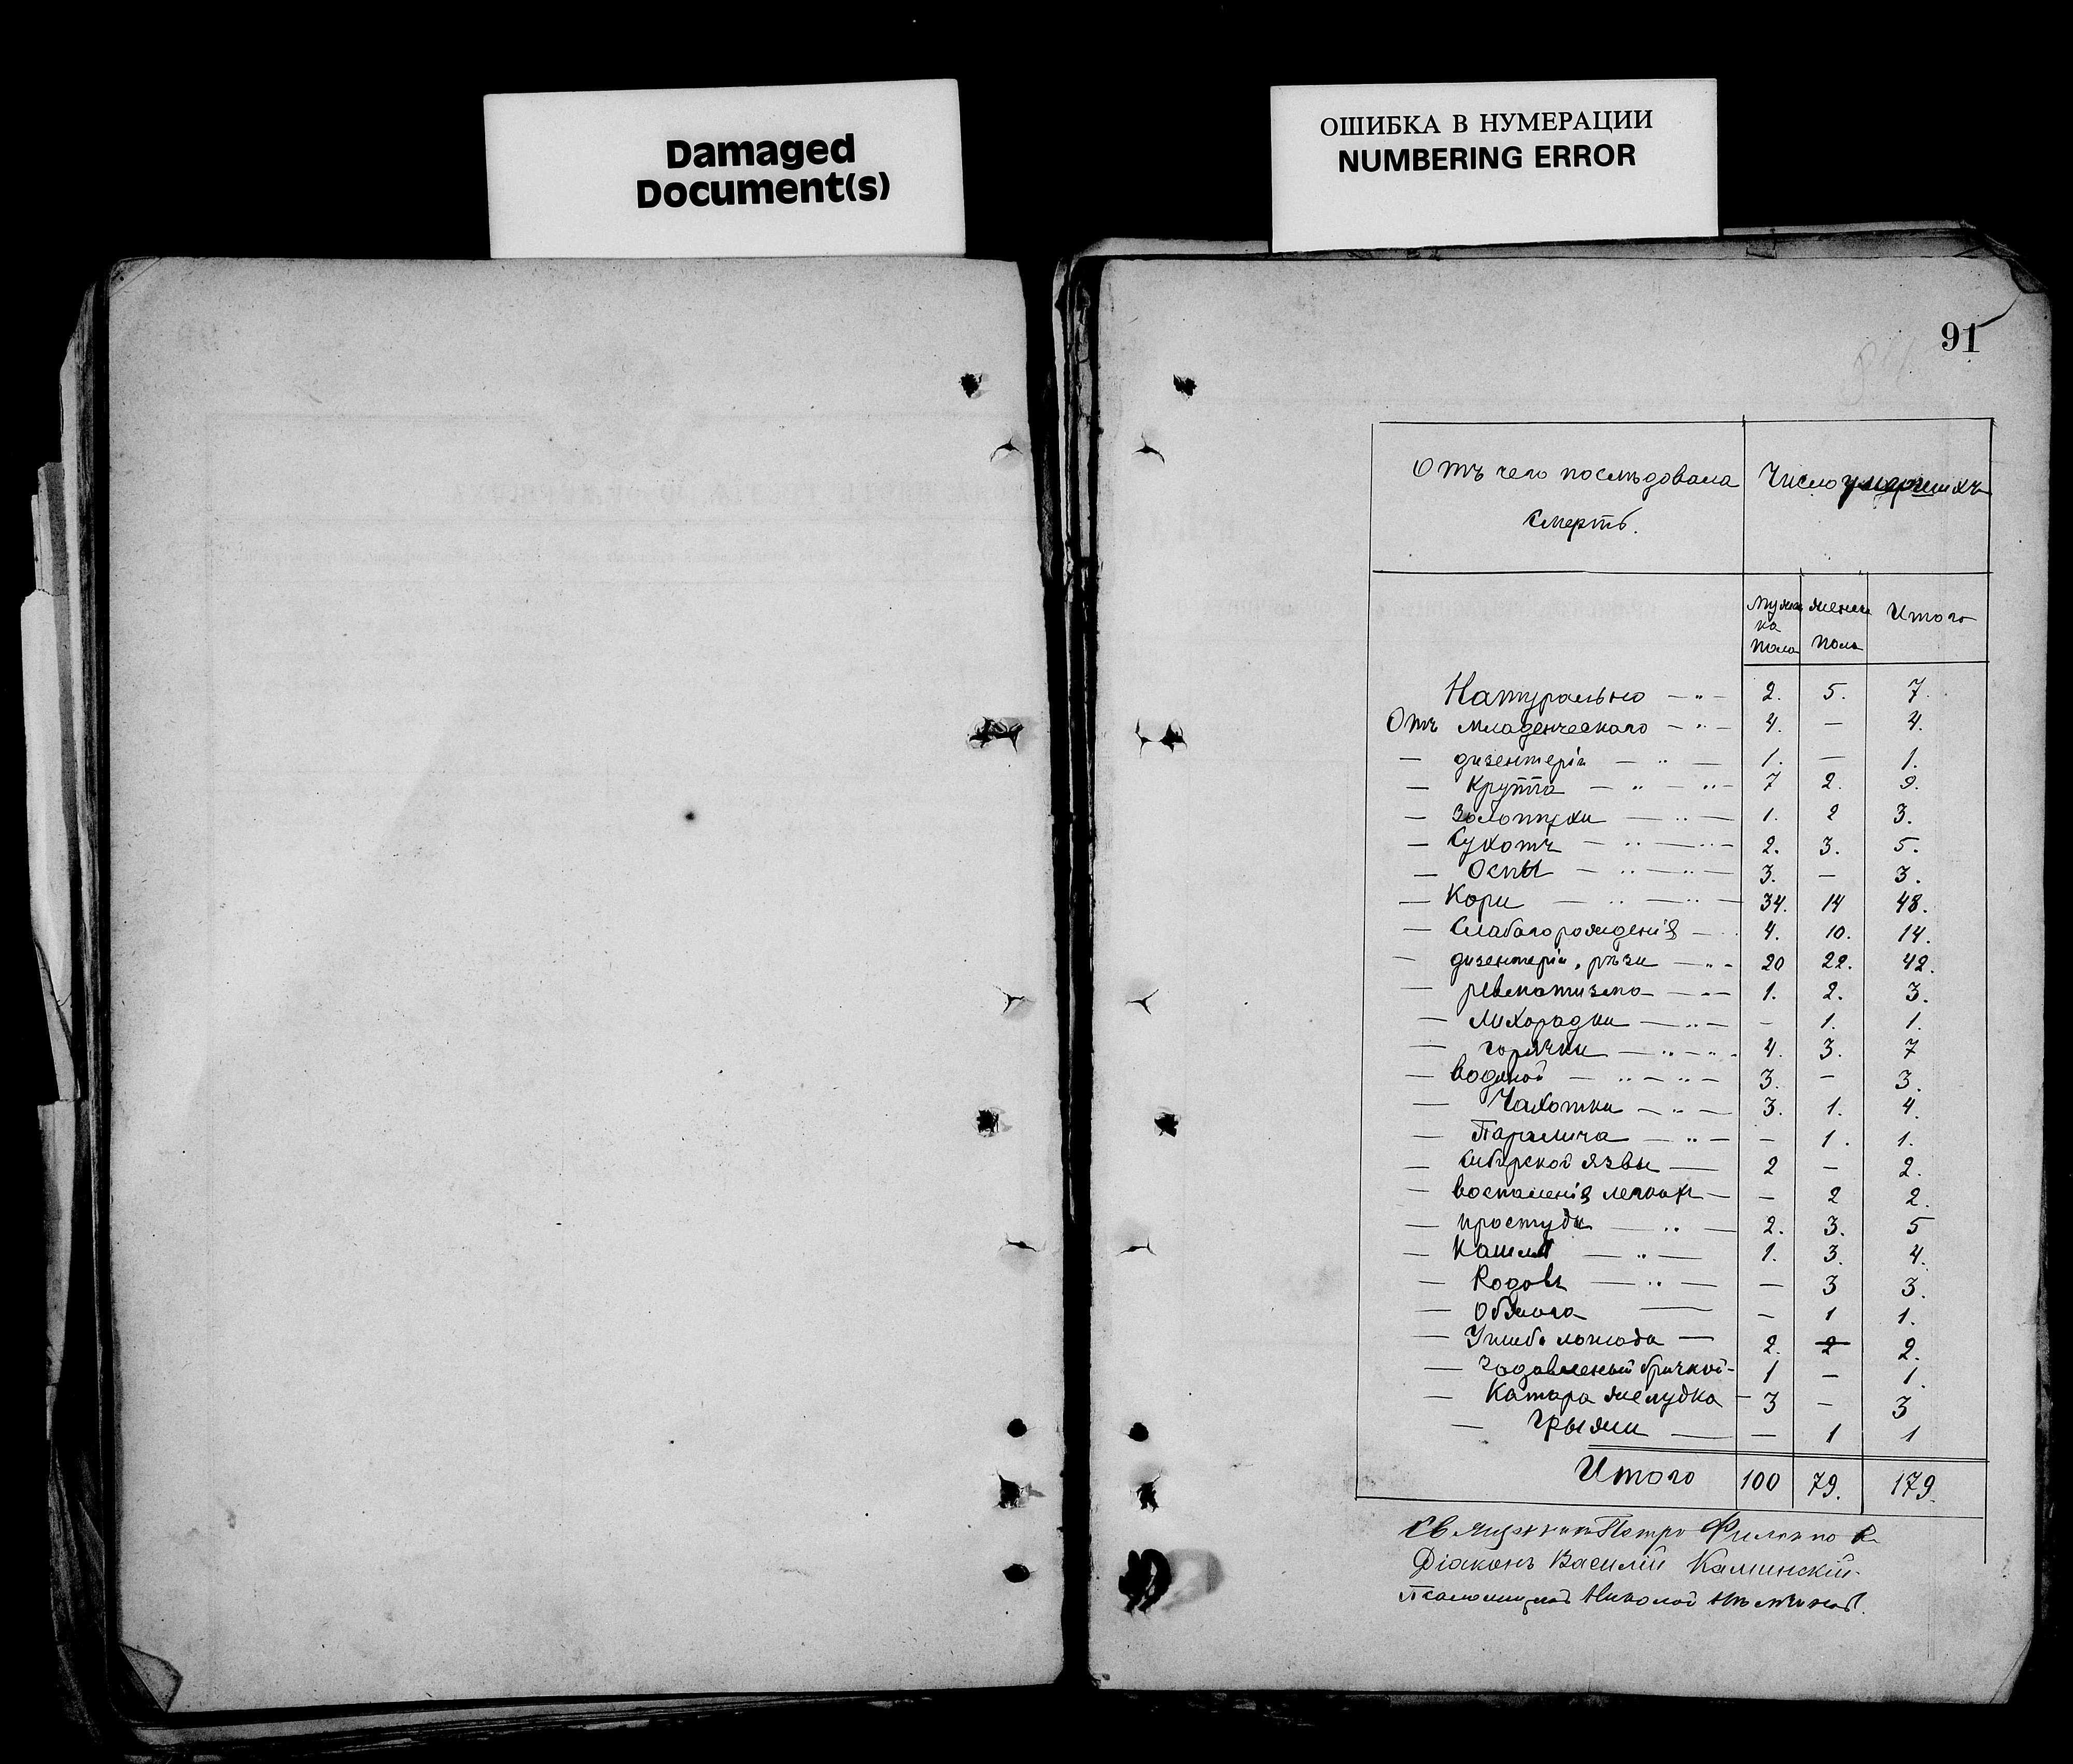 Damaged
Document(s)
ОШИБКА В НУМЕРАЦИИ
NUMBERING ERROR
91
Отъ чего послѣдовала Число умершихъ
смерть.
Мужска пола Женск пола Итого
Натурально — „ — 2. 5. 7.
Отъ младенческаго — „ — 4. — 4.
— дизентеріи — „ — 1. — 1.
— Круппа — „ — „ — 7 2. 9.
— Золотухи — „ — 1. 2 3.
— Сухотъ — „ — „ — 2. 3. 5.
— Оспы — „ — „ — 3. — 3.
— Кори — „ — „ — 34. 14 48.
— Слабаго рожденія — 4. 10. 14.
— дизентеріи, рѣзи — „ — 20 22. 42.
— ревматизма — „ — 1. 2. 3.
— лихорадки — „ — — 1. 1.
— горячки — „ — „ — 4. 3. 7
— водяной — „ — „ — 3. — 3.
— Чахотки — „ — 3. 1. 4.
— Паралича — „ — — 1. 1.
— Сибирской язвы — 2 — 2.
— воспаленія легкихъ — — 2 2.
— простуды — „ — 2. 3. 5
— Кашля — „ — 1. 3. 4.
— Родовъ — „ — — 3 3.
— Обжога — — 1 1.
— Ушиба лошади — 2. 2 2.
— Задавленый бричкой — 1 — 1.
— Катара желудка — 3 — 3
— Грыжи — — 1 1
Итого 100 79. 179.
Священникъ Петръ
Діаконъ Василій Каминскій
Псаломщикъ Николай